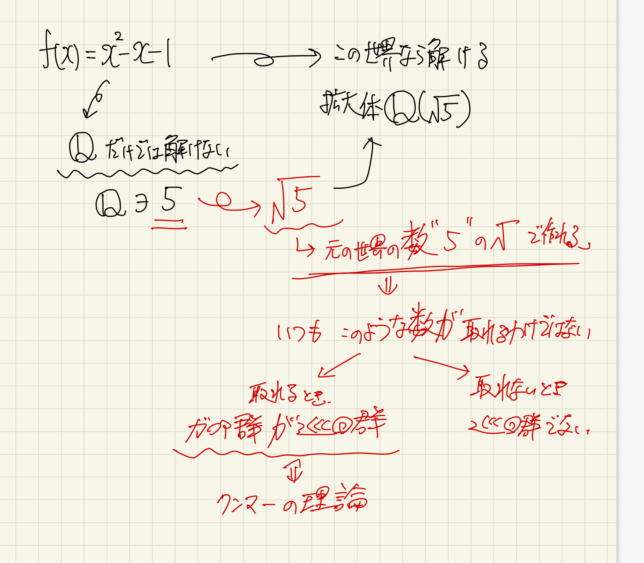 f(x) = x²-x-1 → この世界なら解ける
拡大体 ℚ(√5)
ℚ だけでは解けない
ℚ ∋ 5 → √5
↳ 元の世界の数"5"の√で作れる
⇓
いつも このような数が取れるわけではない
取れるとき
ガロア群が 群
取れないとき
群でない
⇓
クンマーの理論